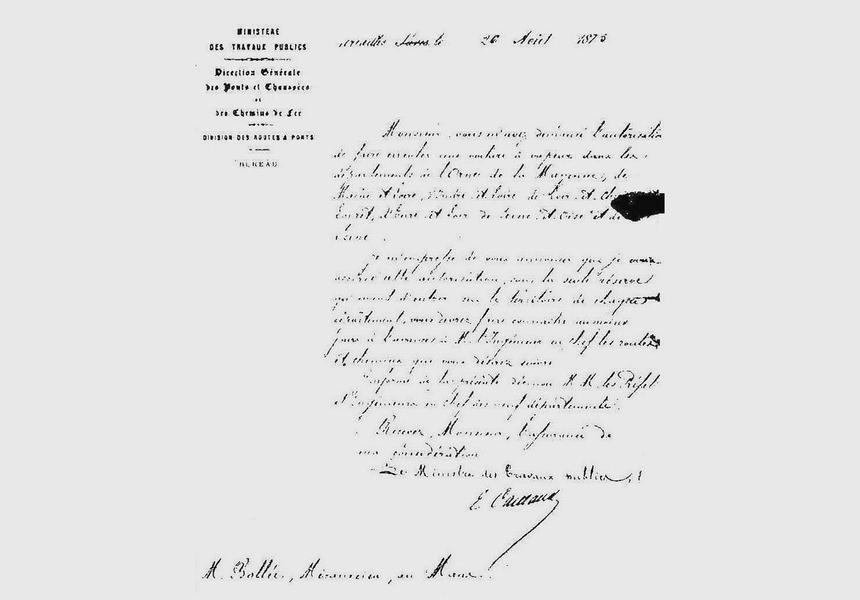 MINISTÈRE
DES TRAVAUX PUBLICS
Direction Générale
des Ponts et Chaussées
et
des Chemins de Fer
DIVISION DES ROUTES & PONTS
BUREAU
Versailles Paris, le 26 Août 1875
Monsieur, vous m'avez demandé l'autorisation
de faire circuler une voiture à vapeur dans les
départements de l'Orne de la Mayenne, de
Maine et Loire, d'Indre et Loire de Loir et Cher
d'Eure et Loir de Seine et Oise et de
Seine.
Je m'empresse de vous annoncer que je vous
accorde cette autorisation, sous la seule réserve
qu'avant d'entrer sur le territoire de chaque
département, vous devrez faire connaître au moins
jours à l'avance à M. l'Ingénieur en chef les routes
et chemins que vous désirez suivre
J'informe de la présente décision M.M. les Préfets
et Ingénieurs en chef des neuf départements.
Recevez, Monsieur, l'assurance de
ma considération
Le Ministre des Travaux publics,
E. Caillaux
M. Bollée, Mécanicien, au Mans.